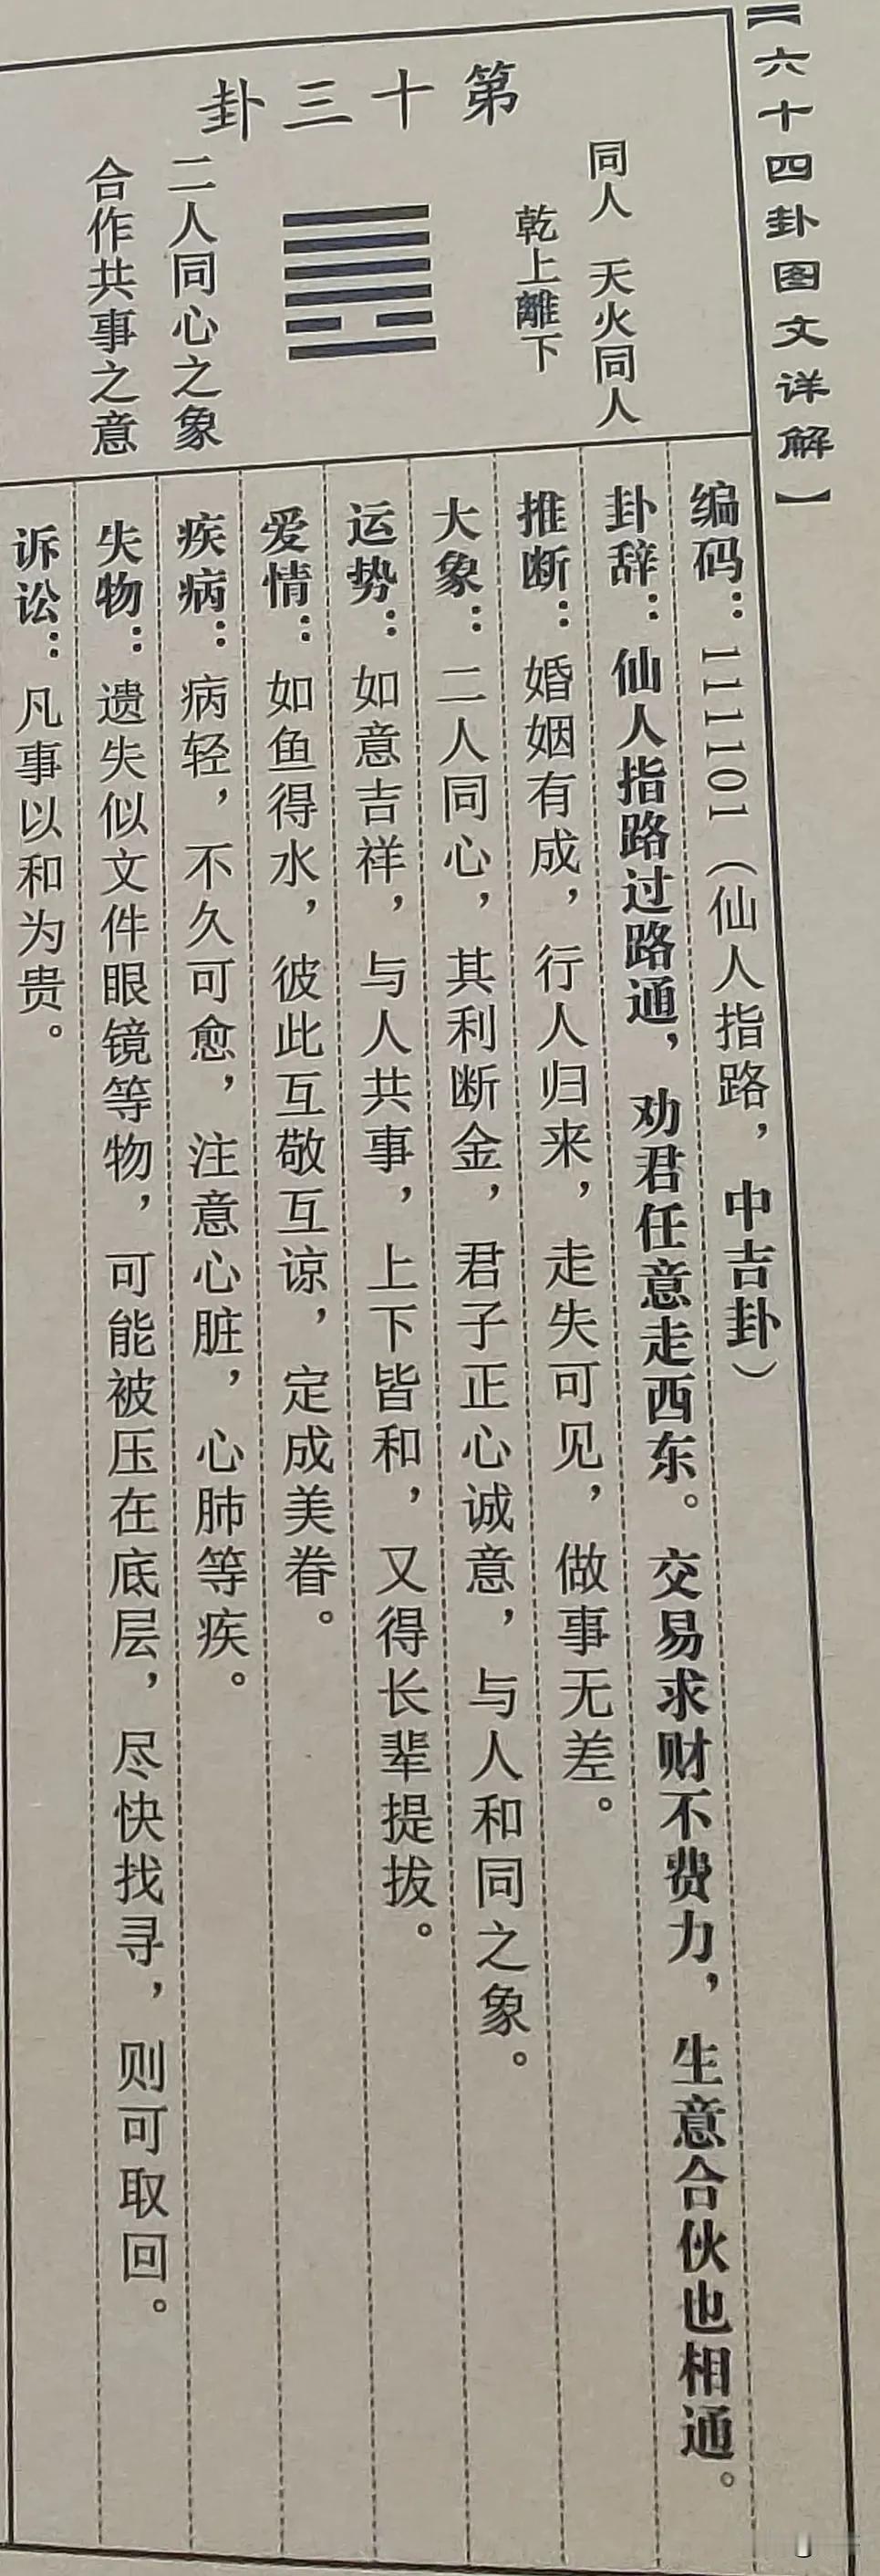 【六十四卦图文详解】
第十三卦
同人 天火同人
乾上離下
二人同心之象
合作共事之意
编码：111101（仙人指路，中吉卦）
卦辞：仙人指路过路通，劝君任意走西东。交易求财不费力，生意合伙也相通。
推断：婚姻有成，行人归来，走失可见，做事无差。
大象：二人同心，其利断金，君子正心诚意，与人和同之象。
运势：如意吉祥，与人共事，上下皆和，又得长辈提拔。
爱情：如鱼得水，彼此互敬互谅，定成美眷。
疾病：病轻，不久可愈，注意心脏，心肺等疾。
失物：遗失似文件眼镜等物，可能被压在底层，尽快找寻，则可取回。
诉讼：凡事以和为贵。